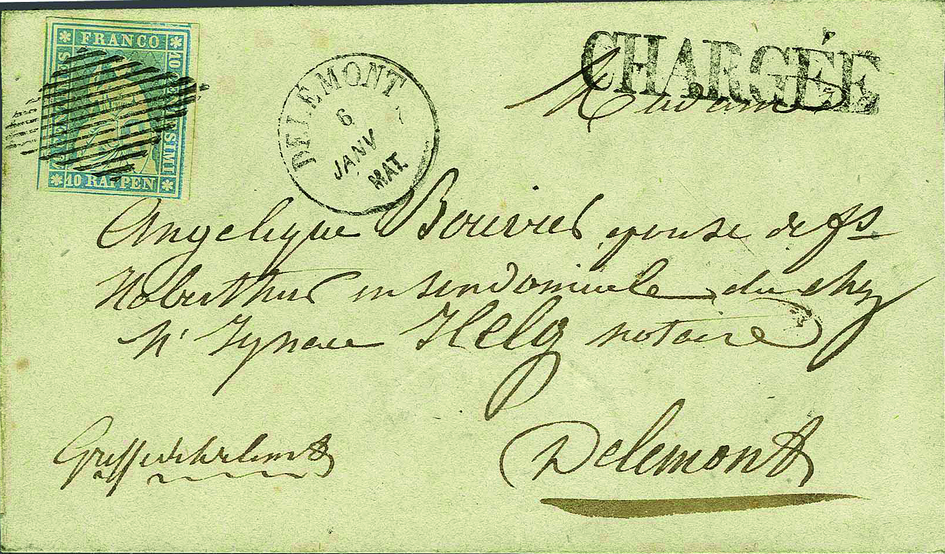 FRANCO
10 RAPPEN
DELÉMONT
6
JANV
MAT.
CHARGÉE
Madame
Angelique Bouvier epouse de fs
Hoberthur en son domicile du chez
Mr Ignace Helg notaire
Delémont